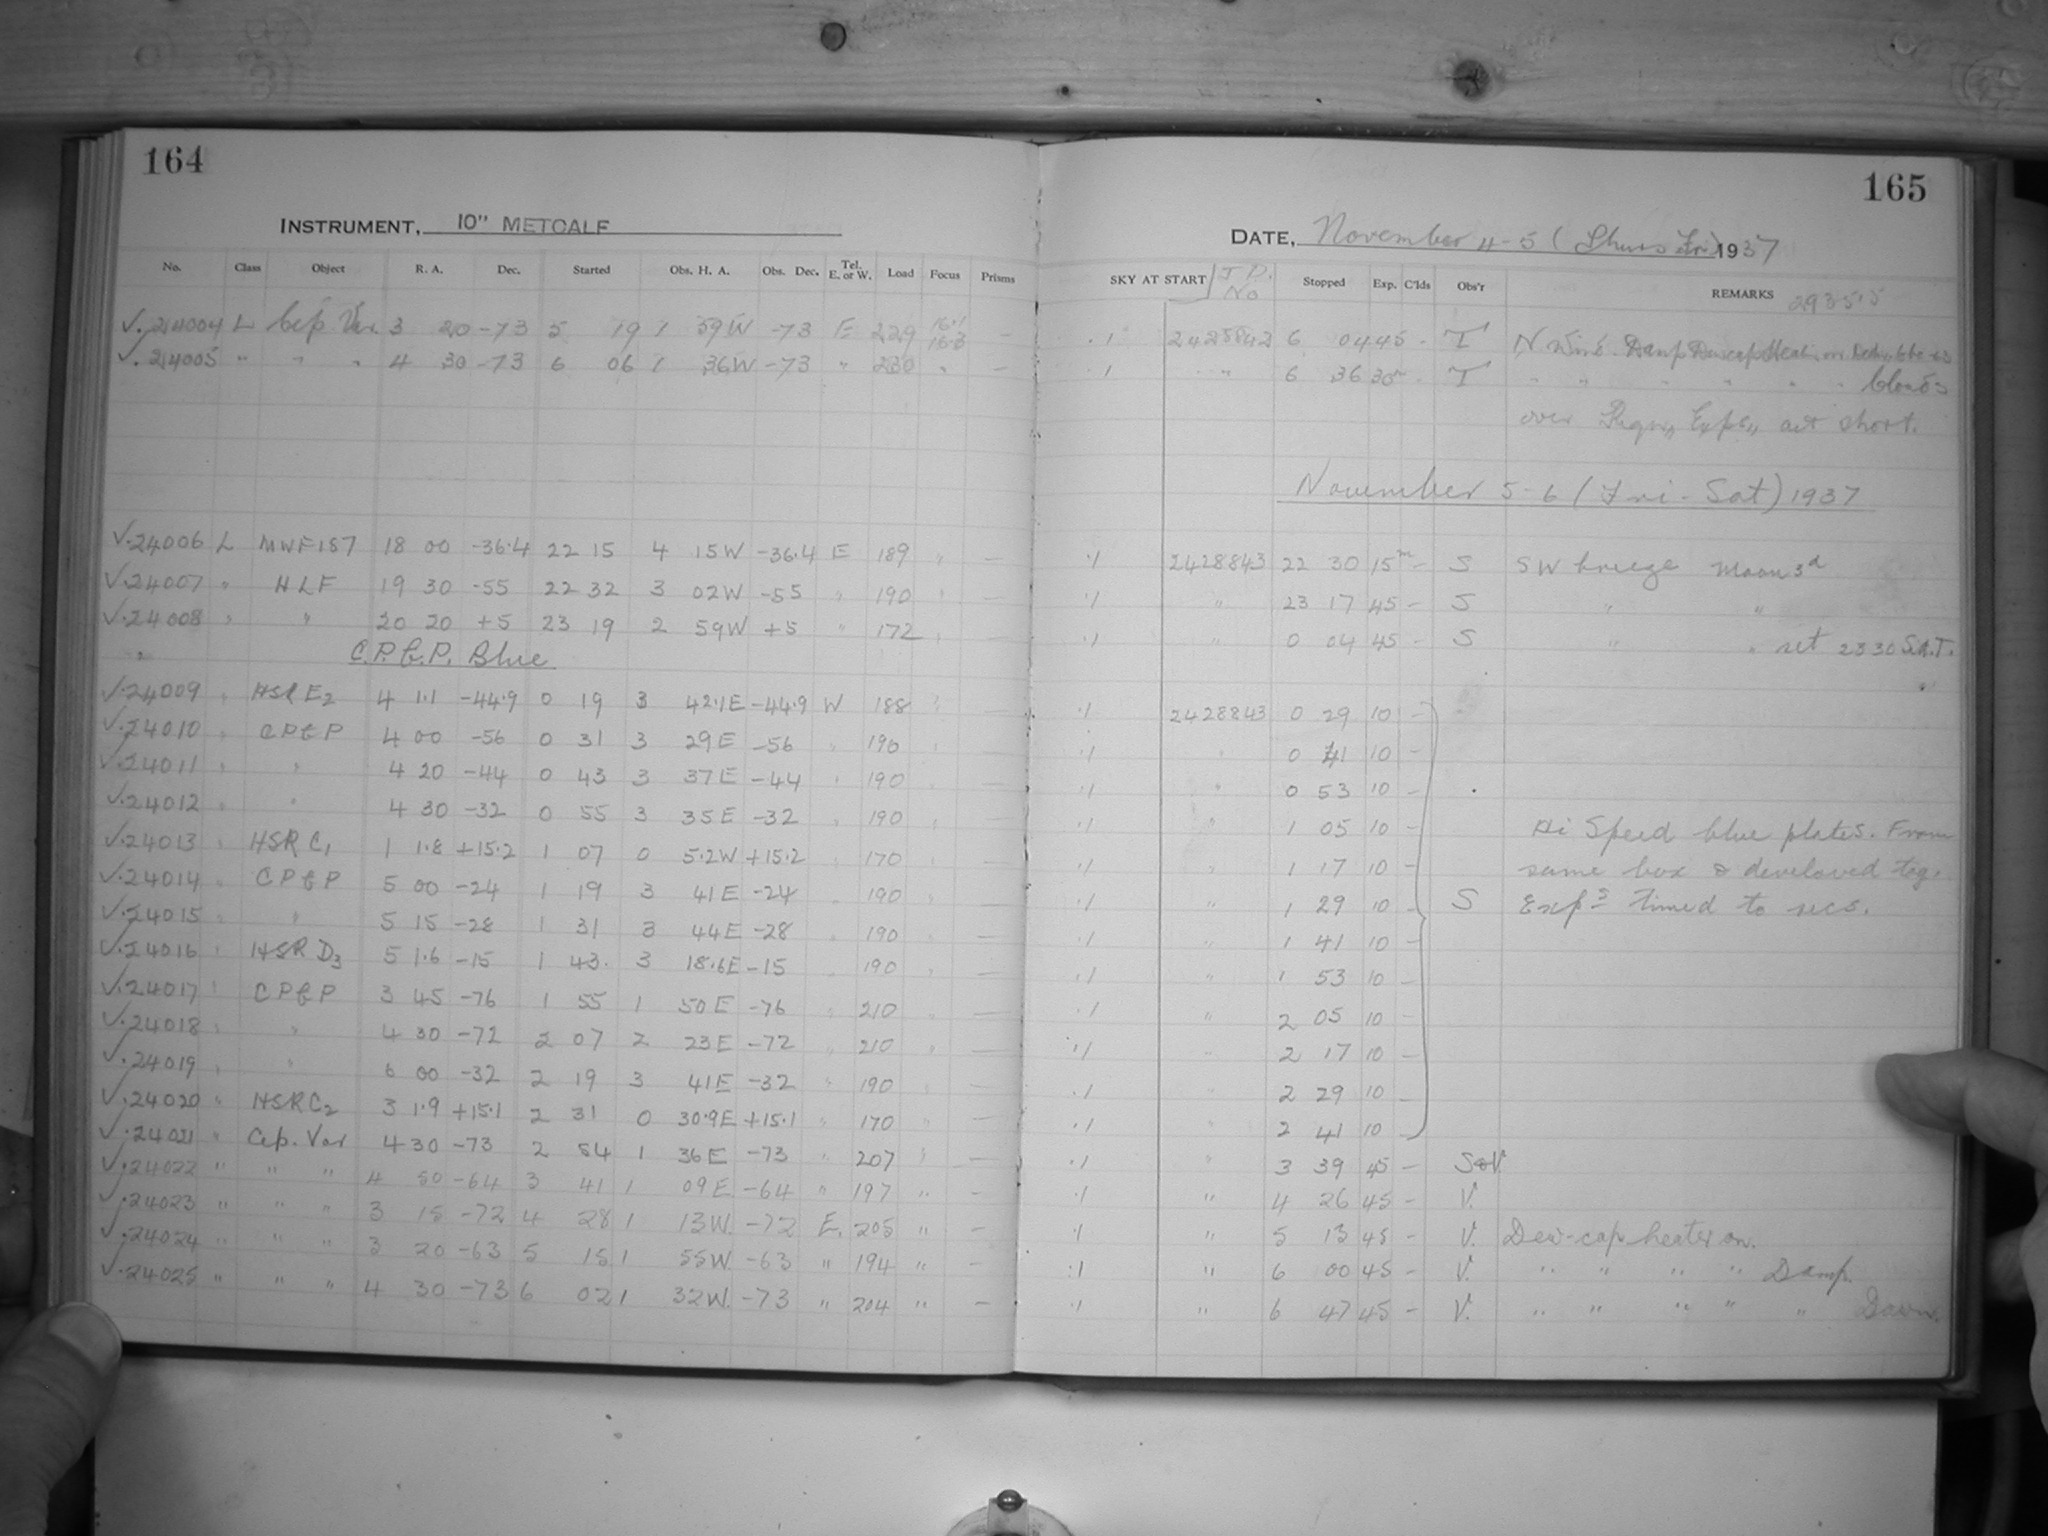 164
INSTRUMENT, 10" METCALF
No. Class Object R. A. Dec. Started Obs. H. A. Obs. Dec. Tel. E. or W. Load Focus Prisms
√. 24004 L Cep Var. 3 20 -73 5 19 1 59W -73 E 229 16.1 16.3 —
√. 24005 " " " 4 30 -73 6 06 1 36W -73 " 230 " —
√. 24006 L MWF 187 18 00 -36.4 22 15 4 15W -36.4 E 189 " —
√. 24007 " HLF 19 30 -55 22 32 3 02W -55 " 190 " —
√. 24008 " " 20 20 +5 23 19 2 59W +5 " 172 " —
C.P.C.P. Blue
√. 24009 " HSR E2 4 1.1 -44.9 0 19 3 42.1E -44.9 W 188 " —
√. 24010 " CPCP 4 00 -56 0 31 3 29E -56 " 190 " —
√. 24011 " " 4 20 -44 0 43 3 37E -44 " 190 " —
√. 24012 " " 4 30 -32 0 55 3 35E -32 " 190 " —
√. 24013 " HSR C1 1 1.8 +15.2 1 07 0 5.2W +15.2 " 170 " —
√. 24014 " CPCP 5 00 -24 1 19 3 41E -24 " 190 " —
√. 24015 " " 5 15 -28 1 31 3 44E -28 " 190 " —
√. 24016 " HSR D3 5 1.6 -15 1 43 3 18.6E -15 " 190 " —
√. 24017 " CPCP 3 45 -76 1 55 1 50E -76 " 210 " —
√. 24018 " " 4 30 -72 2 07 2 23E -72 " 210 " —
√. 24019 " " 6 00 -32 2 19 3 41E -32 " 190 " —
√. 24020 " HSR C2 3 1.9 +15.1 2 31 0 30.9E +15.1 " 170 " —
√. 24021 " Cep. Var 4 30 -73 2 54 1 36E -73 " 207 " —
√. 24022 " " " 4 50 -64 3 41 1 09E -64 " 197 " —
√. 24023 " " " 3 15 -72 4 28 1 13W. -72 E. 205 " —
√. 24024 " " " 3 20 -63 5 15 1 55W. -63 " 194 " —
√. 24025 " " " 4 30 -73 6 02 1 32W. -73 " 204 " —
165
DATE, November 4-5 (Thurs Fri) 1937
SKY AT START J.D. No Stopped Exp. C'lds Obs'r REMARKS 293515
.1 2428842 6 04 45 - T N Wind. Damp Dewcap Heat. on
.1 " 6 36 30m - T " " " " " " Clouds
over Exps., short.
November 5-6 (Fri-Sat) 1937
.1 2428843 22 30 15m - S SW breeze Moon 3d
.1 " 23 17 45 - S " "
.1 " 0 04 45 - S " " set 2330 S.A.T.
.1 2428843 0 29 10 -
.1 " 0 41 10 -
.1 " 0 53 10 -
.1 " 1 05 10 - Hi Speed blue plates. From
.1 " 1 17 10 - same box & develoved tog.
.1 " 1 29 10 - S Exps timed to secs.
.1 " 1 41 10 -
.1 " 1 53 10 -
.1 " 2 05 10 -
.1 " 2 17 10 -
.1 " 2 29 10 -
.1 " 2 41 10 -
.1 " 3 39 45 - S&V.
.1 " 4 26 45 - V.
.1 " 5 13 45 - V. Dew-cap heater on.
.1 " 6 00 45 - V. " " " " Damp.
.1 " 6 47 45 - V. " " " " " Dawn.